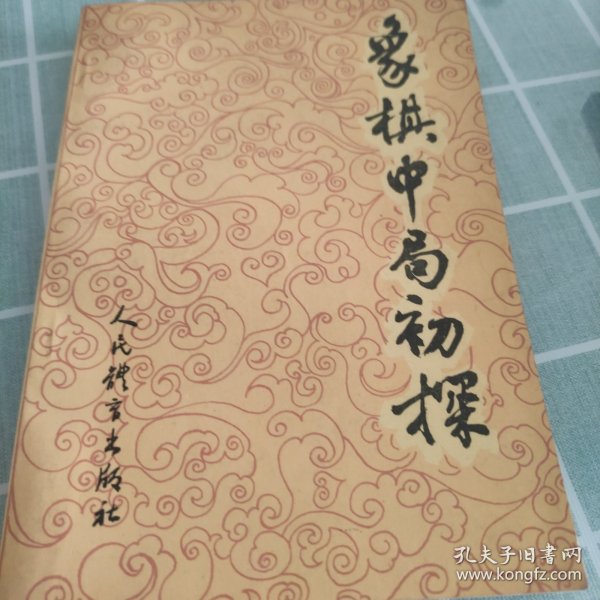 象棋中局初探
人民體育出版社
孔夫子旧书网
www.kongfz.com